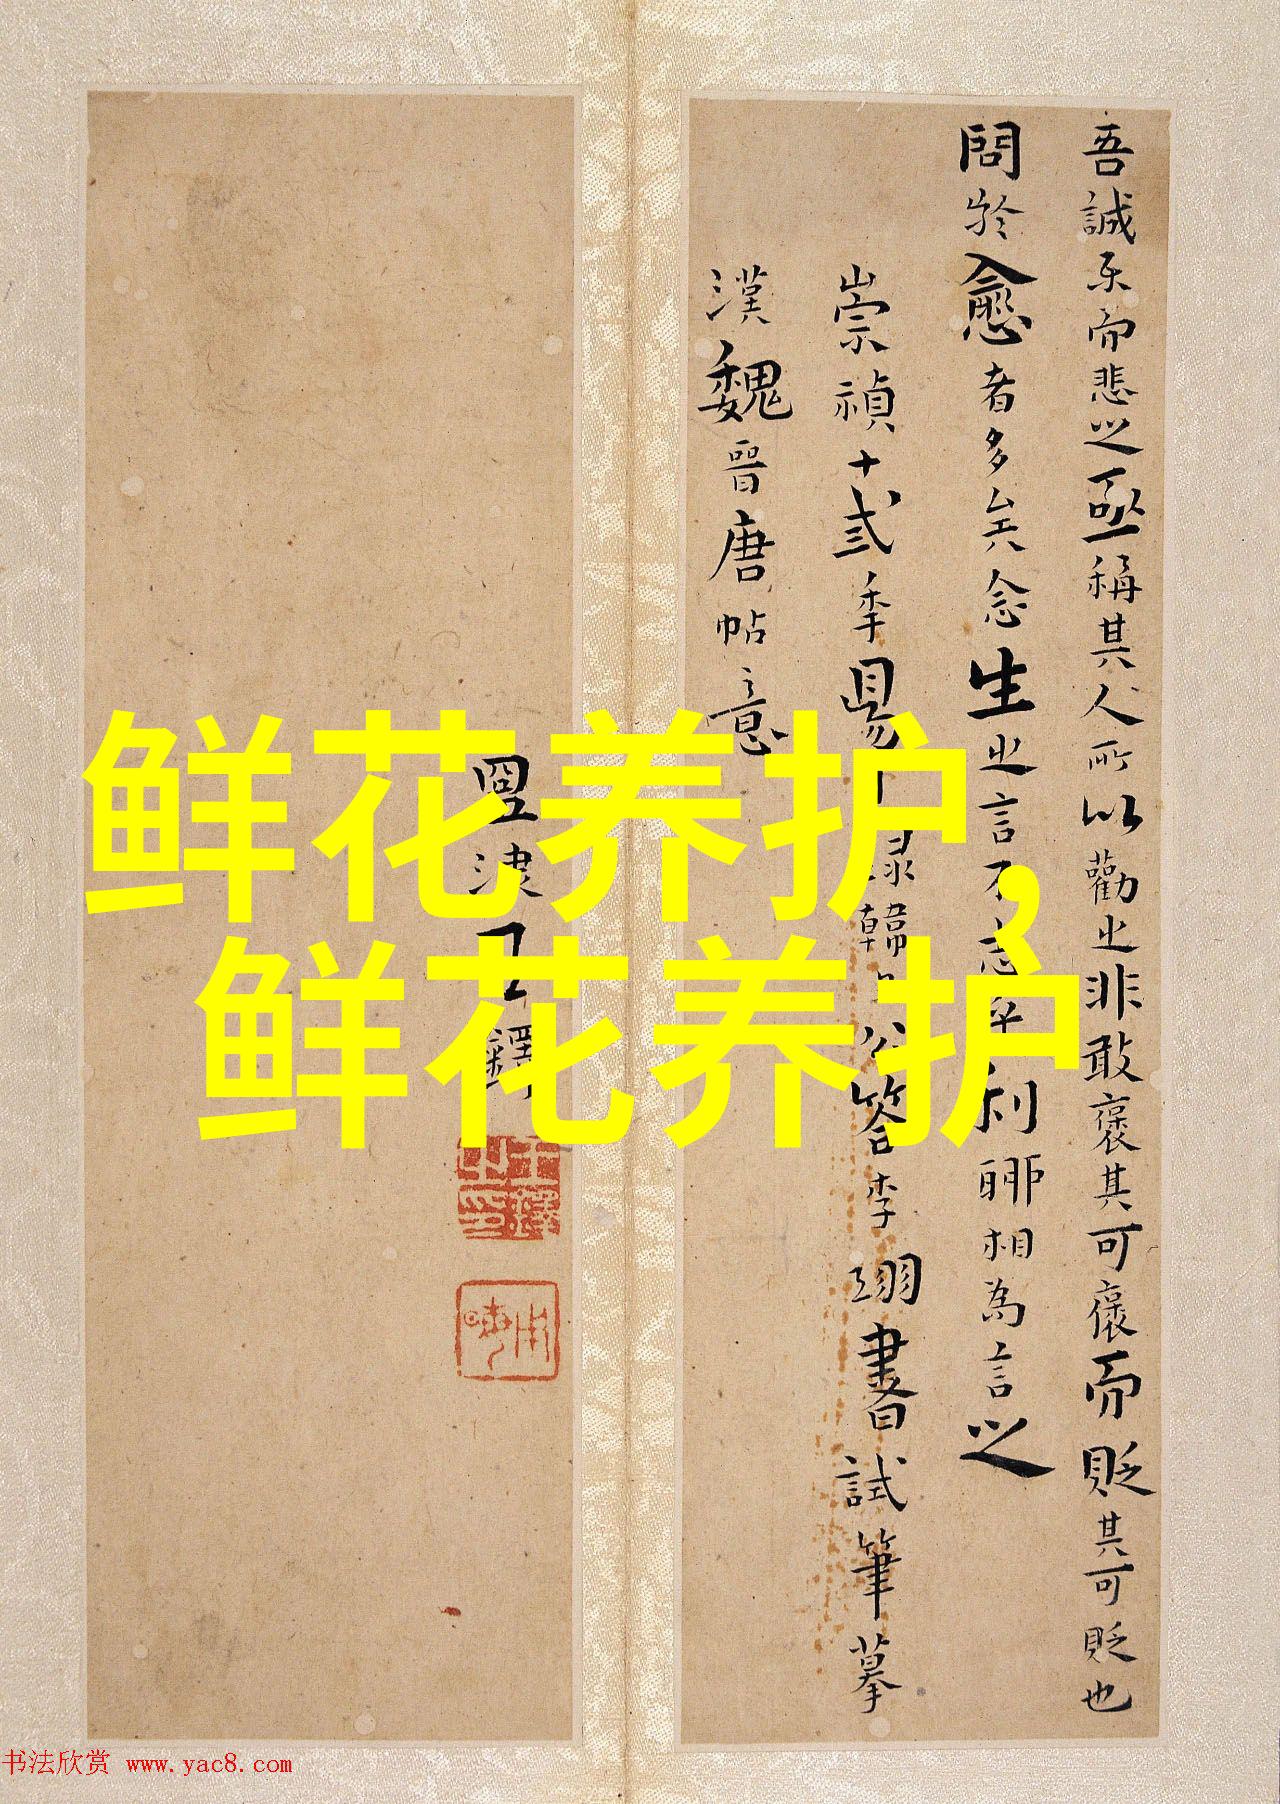 吾誠樂而悲之亟稱其人所以勸之非敢褒其可褒而貶其可貶也
問於愈者多矣念生之言不志乎利聊相為言之
崇禎十弍季
錄韓公答李翊書試筆摹
漢魏晉唐帖意
王鐸
鲜花养护，
鲜花养护
书法欣赏 www.yac8.com